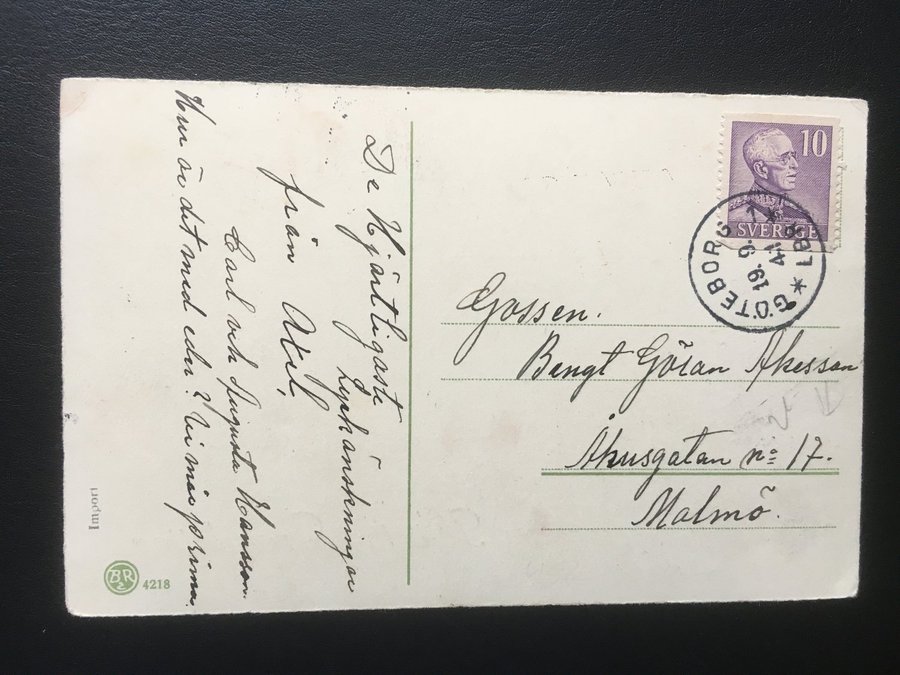 De Hjärtligaste
Lyckönskningar
från Axel,
Carl och Augusta Hansson.
Hur är det med eder? Vi mår prima.
10
SVERIGE
GÖTEBORG 1
19.9.
41
LBR
Gossen.
Bengt Göran Åkesson
Åhusgatan no 17.
Malmö.
Import
BR
4218